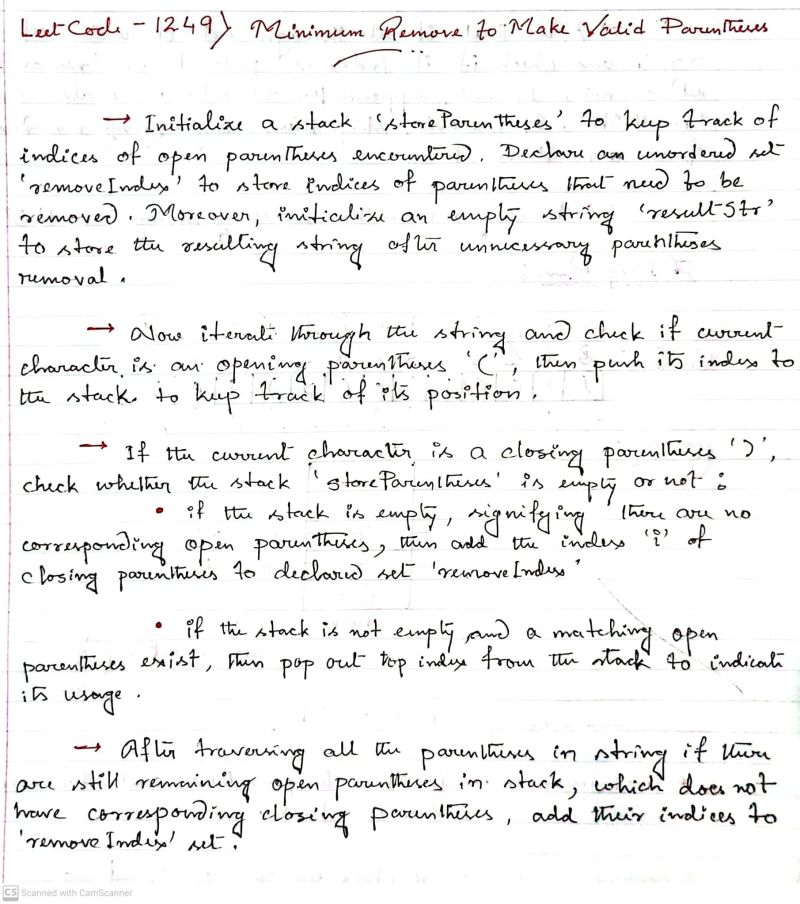 LeetCode - 1249) Minimum Remove to Make Valid Parentheses
→ Initialize a stack 'storeParentheses' to keep track of
indices of open parentheses encountered. Declare an unordered set
'removeIndex' to store indices of parentheses that need to be
removed. Moreover, initialize an empty string 'resultStr'
to store the resulting string after unnecessary parentheses
removal.
→ Now iterate through the string and check if current
character is an opening parentheses '(', then push its index to
the stack to keep track of its position.
→ If the current character is a closing parentheses ')',
check whether the stack 'storeParentheses' is empty or not :
• if the stack is empty, signifying there are no
corresponding open parentheses, then add the index 'i' of
closing parentheses to declared set 'removeIndex'
• if the stack is not empty and a matching open
parentheses exist, then pop out top index from the stack to indicate
its usage.
→ After traversing all the parentheses in string if there
are still remaining open parentheses in stack, which does not
have corresponding closing parentheses, add their indices to
'removeIndex' set.
CS Scanned with CamScanner